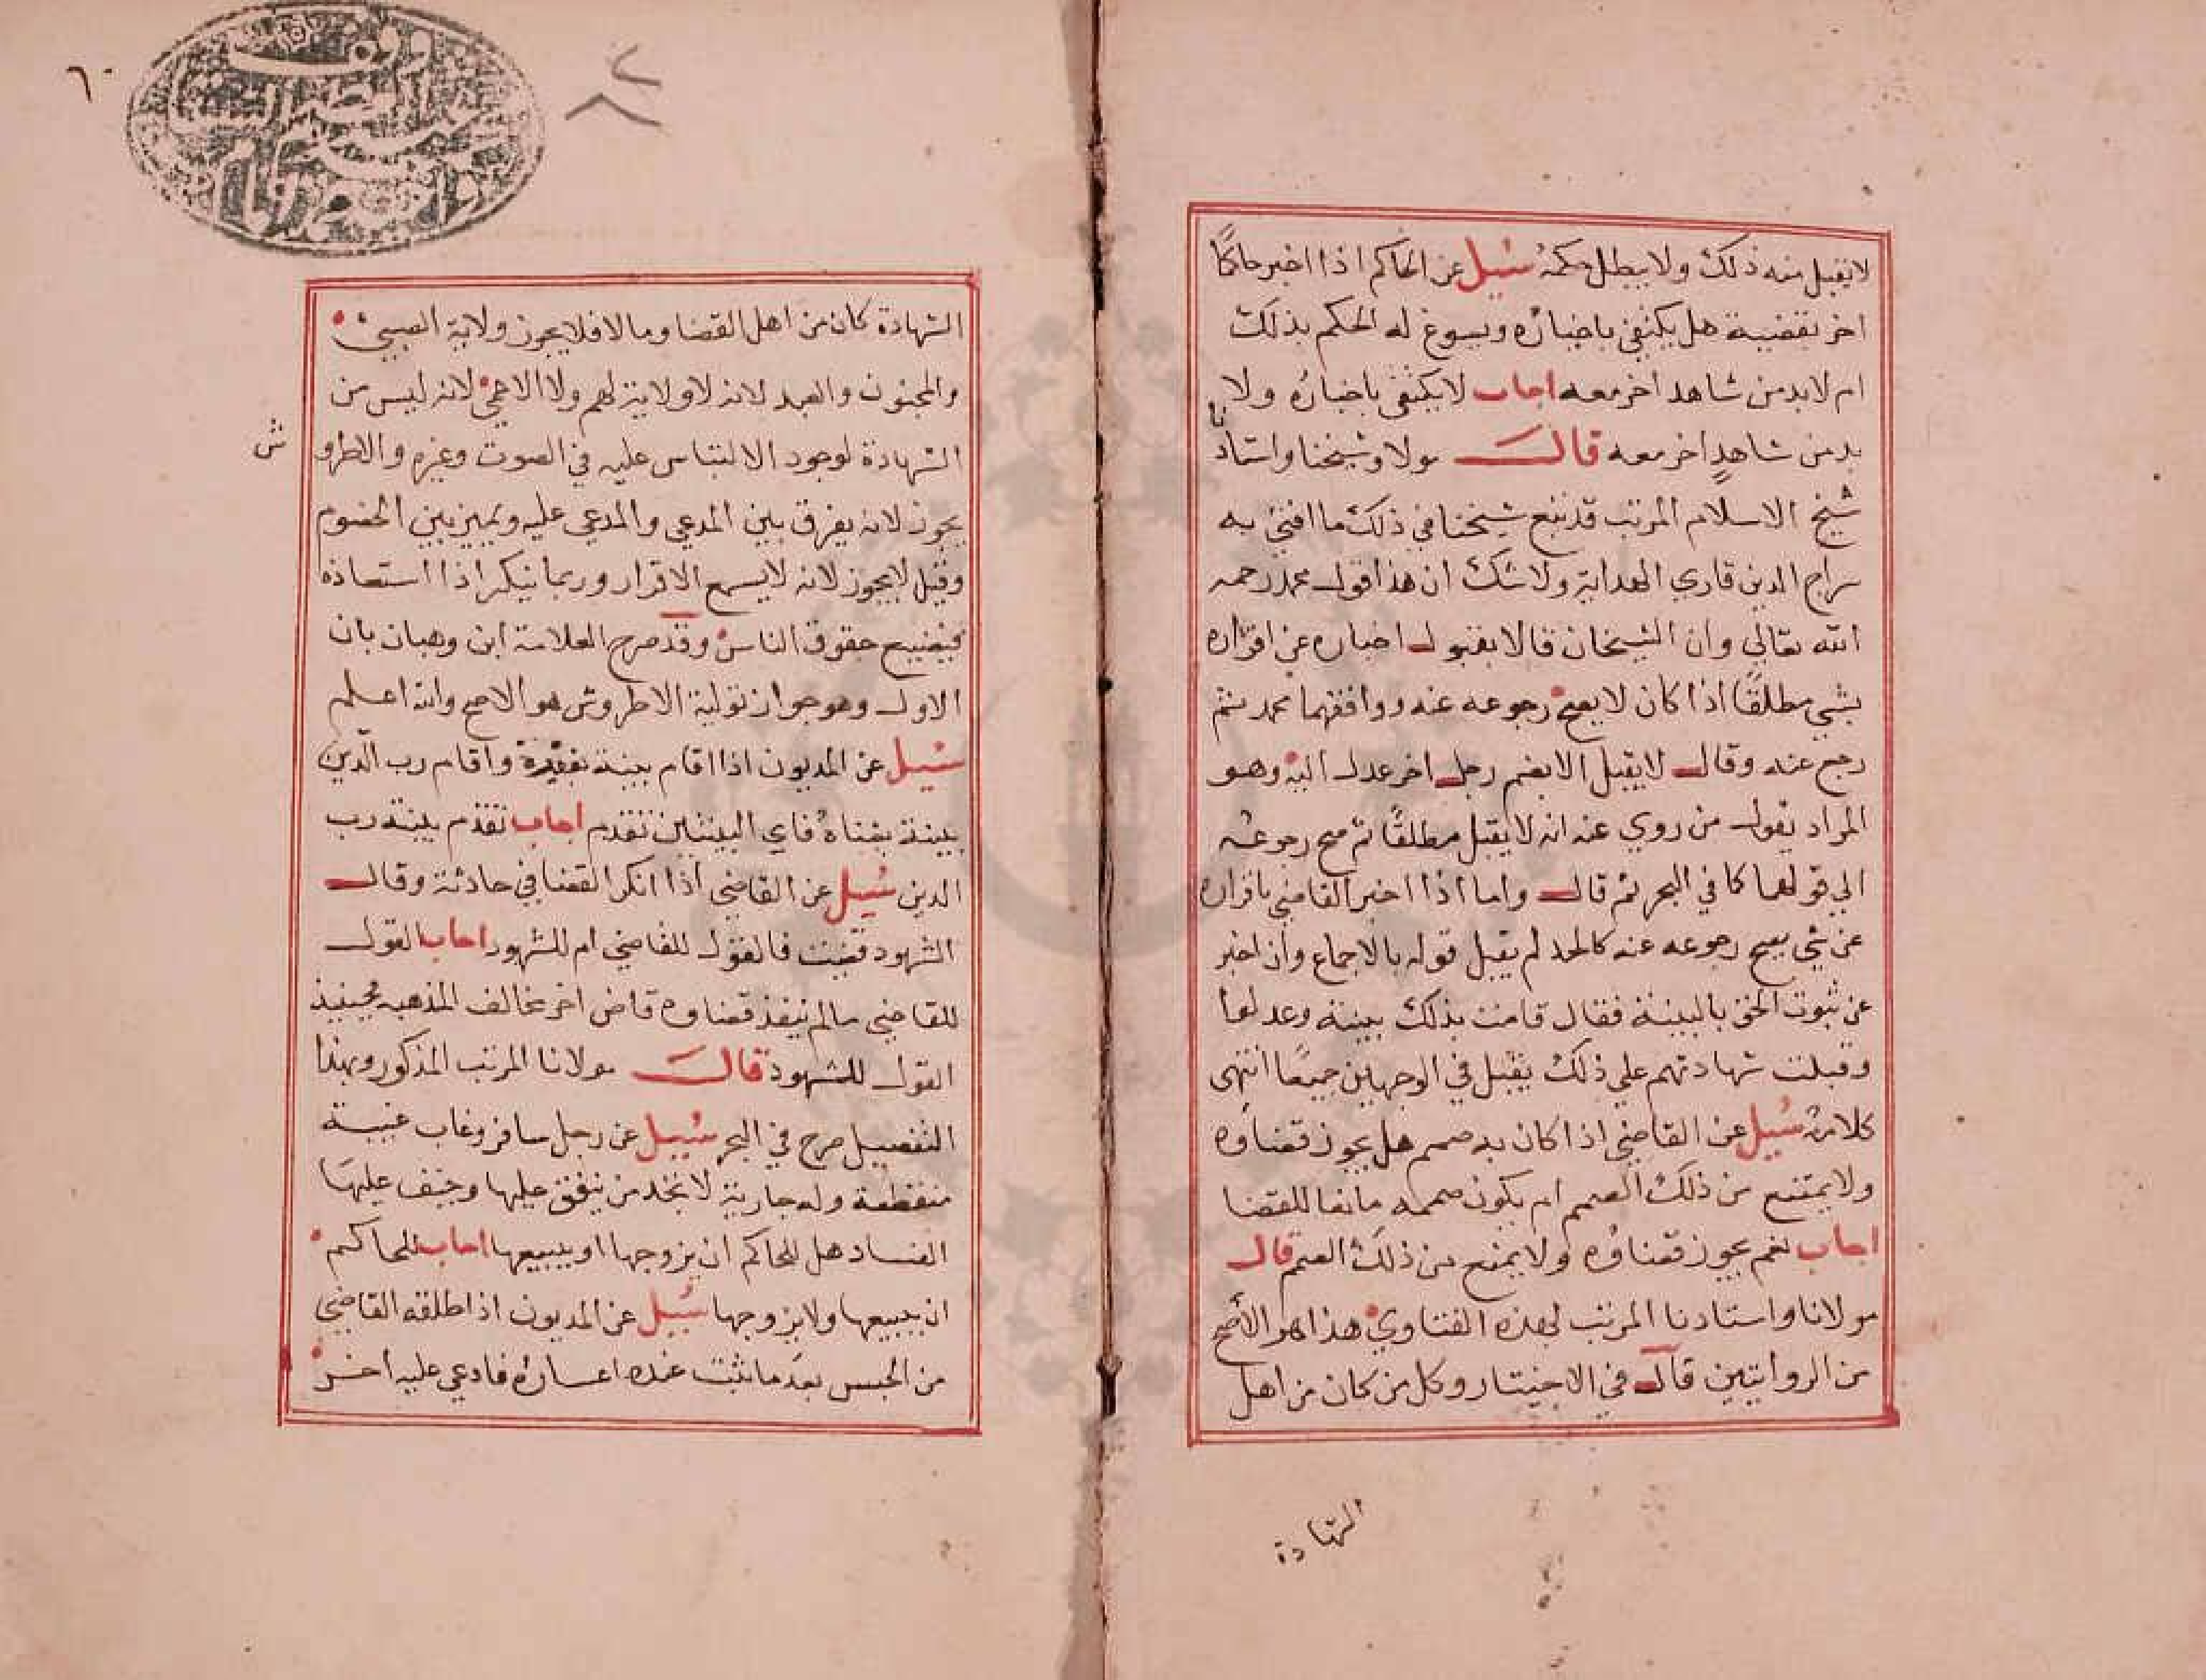 لا يقبل منه ذلك ولا يبطل حكمه سئيل عن الحاكم اذا اخبر حاكما
اخر بقضية هل يكتفي باخباره ويسوغ له الحكم بذلك
ام لا بد من شاهد اخر معه اجاب لا يكتفي باخباره ولا
بد من شاهدٍ اخر معه قال مولانا وشيخنا واستاد
شيخ الاسلام المرتب قد تبع شيخنا في ذلك ما افتي به
سراج الدين قاري الهداية ولا شك ان هذا قول محمد رحمه
الله تعالي وان الشيخان قالا بقبول اخباره عن اقراره
بشي مطلقًا اذا كان لا يصح رجوعه عنه ووافقهما محمد ثم
رجع عنه وقال لا يقبل الا بضم رجل اخر عدل اليه وهو
المراد بقول من روي عنه انه لا يقبل مطلقًا ثم صح رجوعه
الي قولهما كما في البحر ثم قال واما اذا اخبر القاضي باقراره
عن شي يصح رجوعه عنه كالحد لم يقبل قوله بالاجماع وان اخبر
عن ثبوت الحق بالبينة فقال قامت بذلك بينة وعدلوا
وقبلت شهادتهم علي ذلك يقبل في الوجهين جميعًا انتهى
كلامه سئيل عن القاضي اذا كان به صمم هل يجوز قضاؤه
ولا يمتنع من ذلك الصمم ام يكون صممه مانعا للقضا
اجاب نعم يجوز قضاؤه ولا يمنع من ذلك الصمم قال
مولانا واستادنا المرتب لهذه الفتاوي هذا هو الأصح
من الروايتين قال في الاختيار وكل من كان من اهل
الشهادة
٦٠
الشهادة كان من اهل القضا وما لا فلا يجوز ولاية الصبي
والمجنون والعبد لانه لا ولاية لهم ولا الاعمي لانه ليس من
الشهادة لوجود الالتباس عليه في الصوت وغيره والاطرو
ش
يجوز لانه يفرق بين المدعي والمدعي عليه ويميز بين الخصوم
وقيل لا يجوز لانه لا يسمع الاقرار وربما ينكر اذا استعاذه
فيضيع حقوق الناس وقد صرح العلامة ابن وهبان بان
الاول وهو جواز تولية الاطروش هو الاصح والله اعلم
سئيل عن المديون اذا اقام بينة بفقره واقام رب الدين
بينة بغناه فاي البينتين تقدم اجاب تقدم بينة رب
الدين سئيل عن القاضي اذا انكر القضا في حادثة وقال
الشهود قضيت فالقول للقاضي ام للشهود اجاب القول
للقاضي ما لم ينفذ قضاوه قاض اخر مخالف المذهبه فحينيذ
القول للشهود قال مولانا المرتب المذكور وبهذا
التفصيل صرح في البحر سئيل عن رجل سافر وغاب غيبة
منقطعة وله جارية لا تجد من ينفق عليها وخيف عليها
الفساد هل للحاكم ان يزوجها او يبيعها اجاب للحاكم
ان يبيعها ولا يزوجها سئيل عن المديون اذا اطلقه القاضي
من الحبس بعد ما ثبت عنده اعساره فادعي عليه اخر